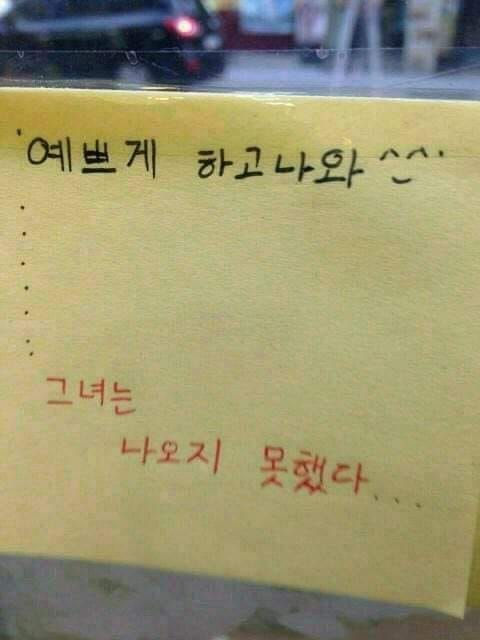 '예쁘게 하고나와 ^_^'
.
.
.
.
.
.
그녀는
나오지 못했다....